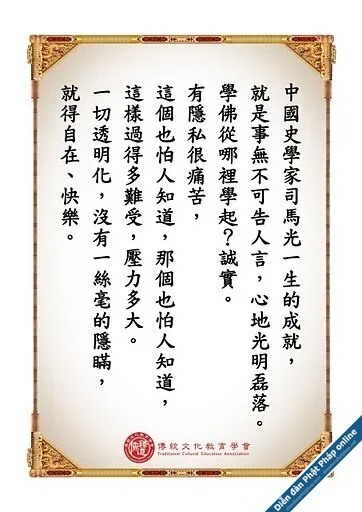 中國史學家司馬光一生的成就，
就是事無不可告人言，心地光明磊落。
學佛從哪裡學起？誠實。
有隱私很痛苦，
這個也怕人知道，那個也怕人知道，
這樣過得多難受，壓力多大。
一切透明化，沒有一絲毫的隱瞞，
就得自在、快樂。
傳統文化教育學會
Traditional Cultural Education Association
Diễn đàn Phật Pháp online